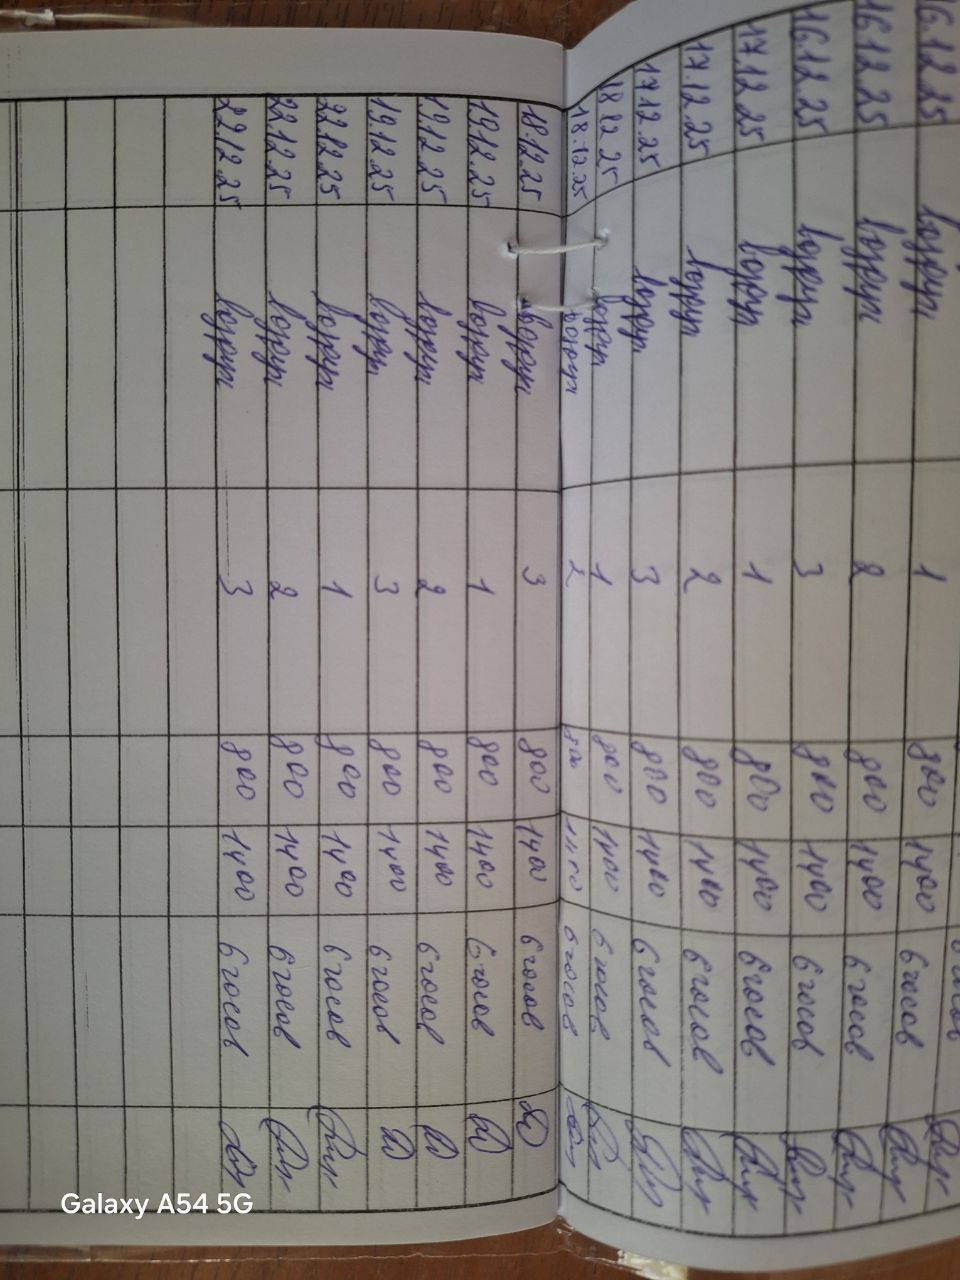 16.12.25 воздух 1 800 1400 6 часов
16.12.25 воздух 2 800 1400 6 часов
16.12.25 воздух 3 800 1400 6 часов
17.12.25 воздух 1 800 1400 6 часов
17.12.25 воздух 2 800 1400 6 часов
17.12.25 воздух 3 800 1400 6 часов
18.12.25 воздух 1 800 1400 6 часов
18.12.25 воздух 2 800 1400 6 часов
18.12.25 воздух 3 800 1400 6 часов
19.12.25 воздух 1 800 1400 6 часов
19.12.25 воздух 2 800 1400 6 часов
19.12.25 воздух 3 800 1400 6 часов
22.12.25 воздух 1 800 1400 6 часов
22.12.25 воздух 2 800 1400 6 часов
22.12.25 воздух 3 800 1400 6 часов
Galaxy A54 5G